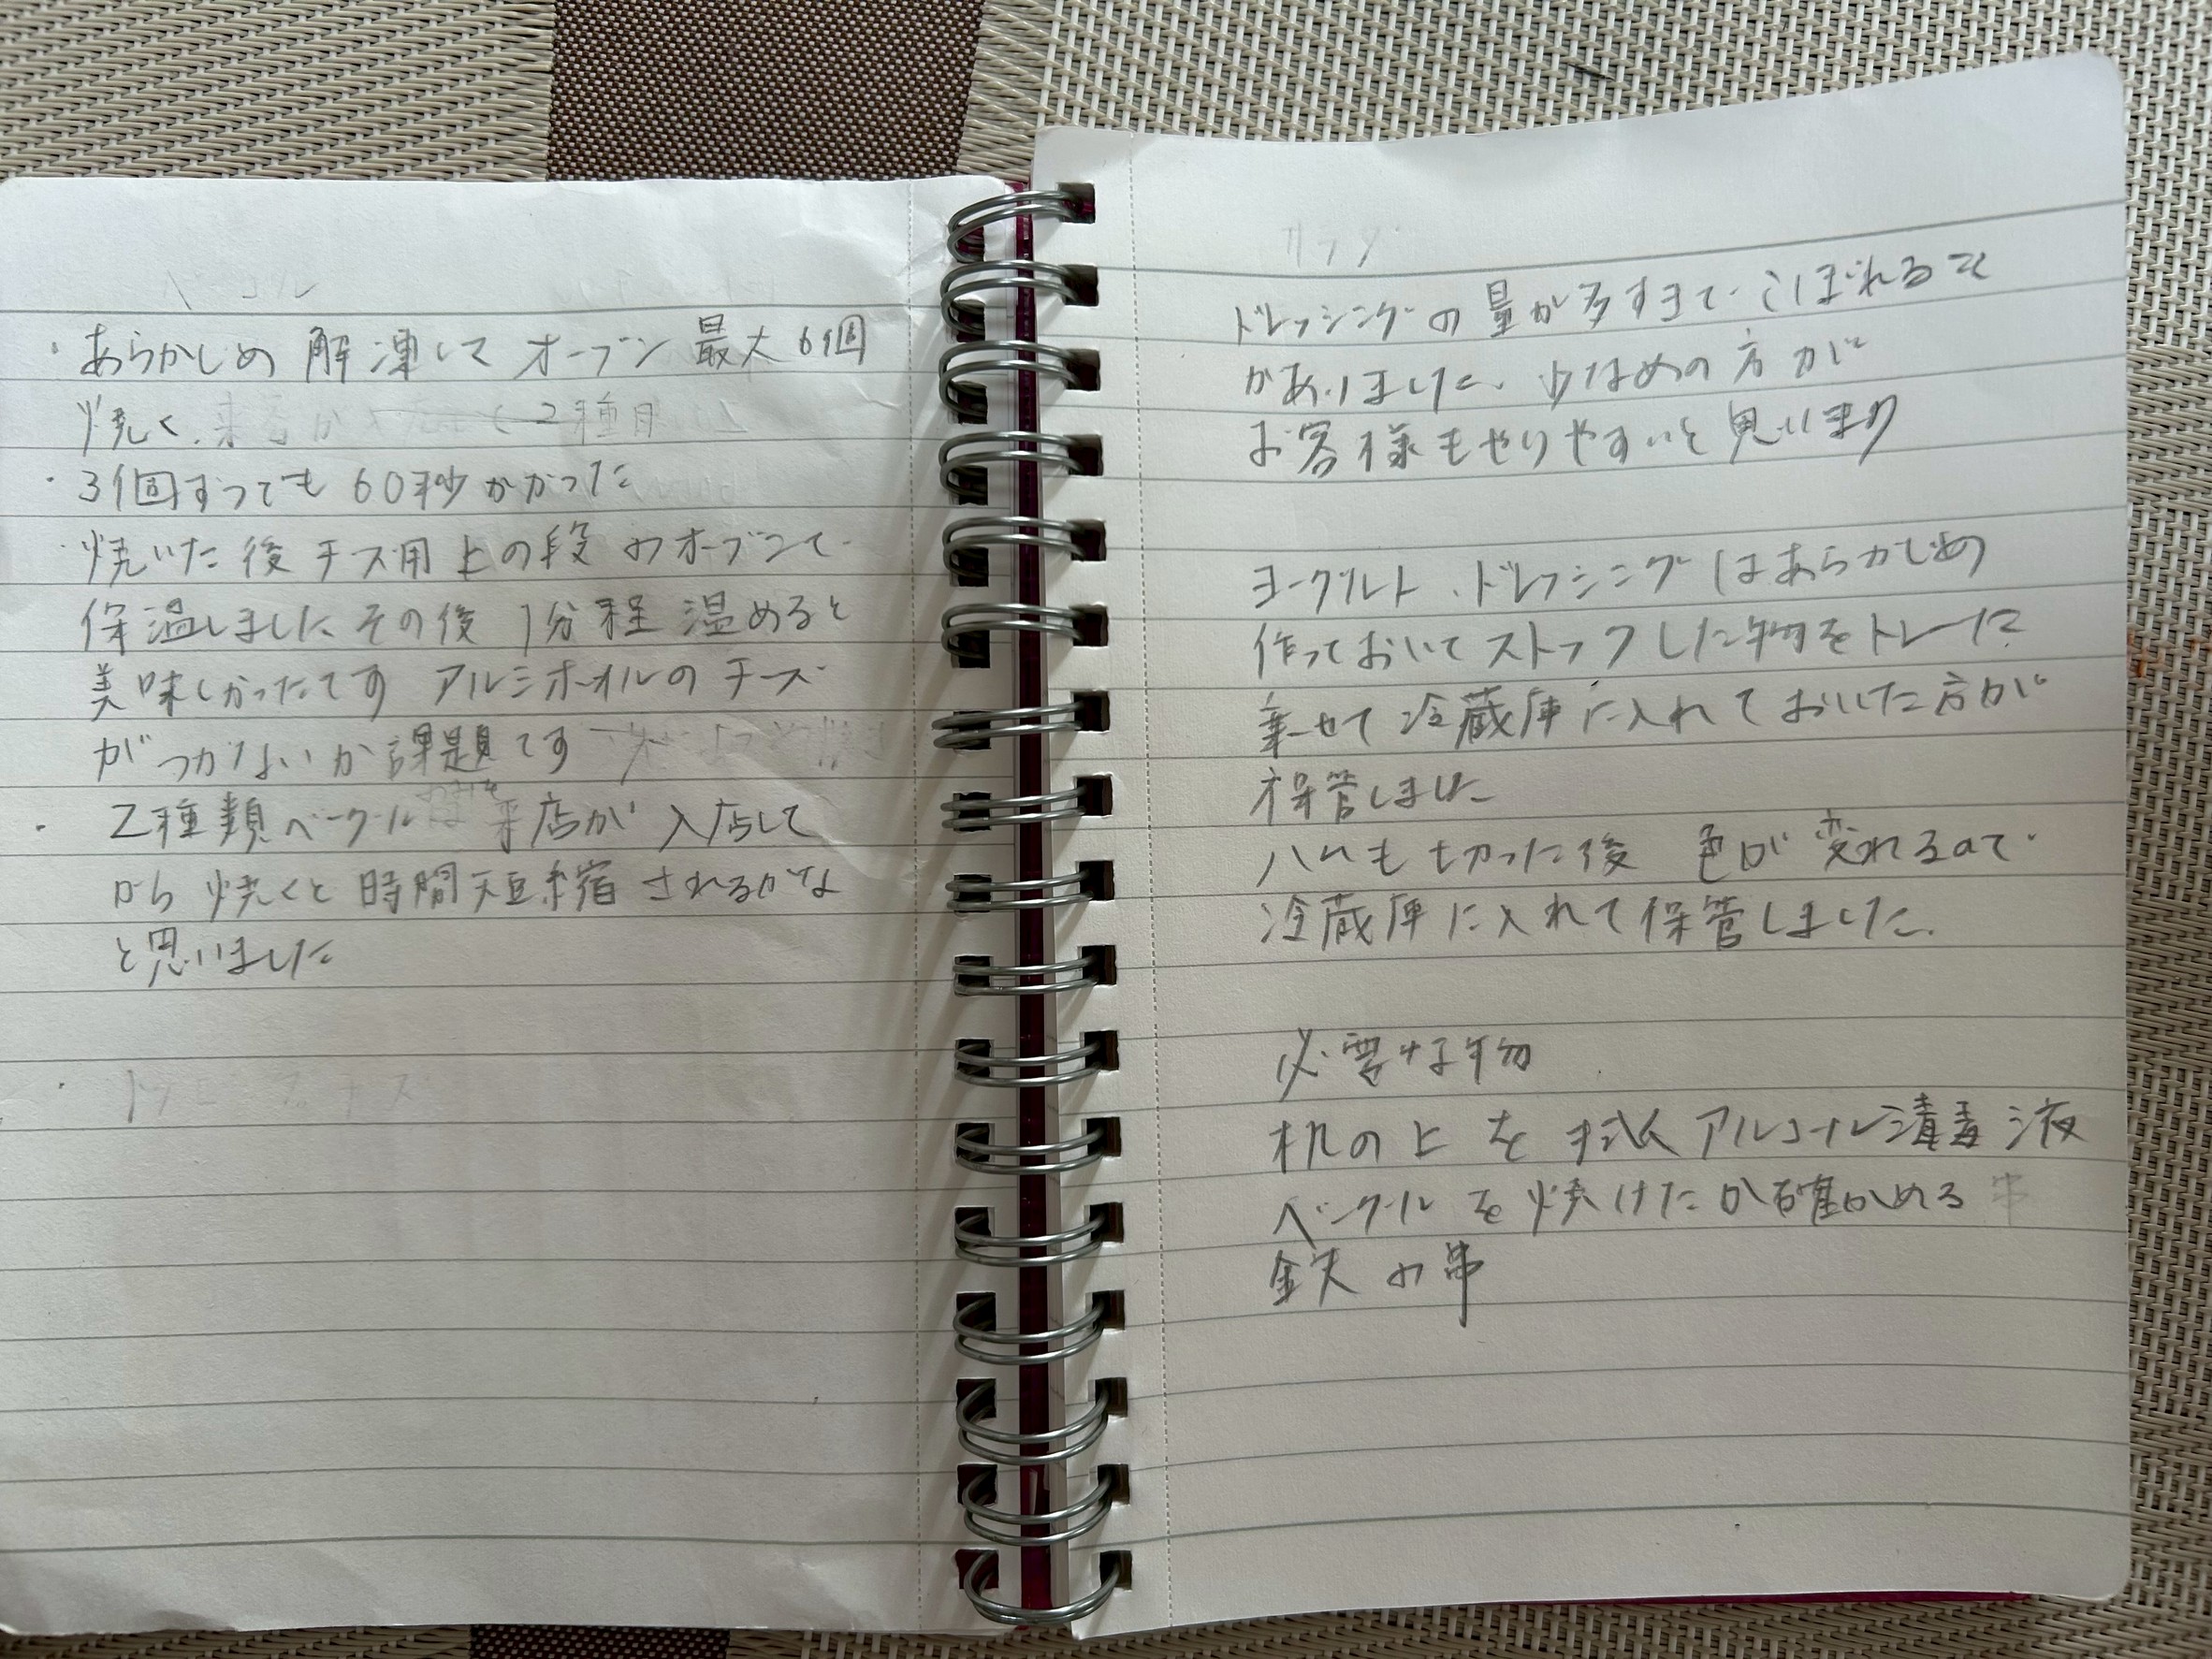 ベーグル
・あらかじめ 解凍して オーブン 最大 6個
焼く.
・3個ずつでも 60秒かかった
・焼いた 後 チズ用 上の段 のオーブンで
保温しました その後 1分程 温めると
美味しかったです アルミホオイルの チーズ
が つかないか 課題です
・2種類 ベーグル 来店が 入店して
から 焼くと 時間短縮 されるかな
と思いました
・トッピング チーズ
サラダ
ドレッシングの 量が多すぎて こぼれること
がありました. 少なめの 方 が
お客様もやりやすいと 思います
ヨーグルト.ドレッシングはあらかじめ
作っておいて ストックした物をトレーに
乗せて 冷蔵庫に入れて おいた方が
保管しました
ハムも 切った後 色が 変れるので
冷蔵庫に入れて保管しました.
必要な物
机の 上 を 拭く アルコール消毒 液
ベーグル を 焼けたか確かめる 串
鉄 の串